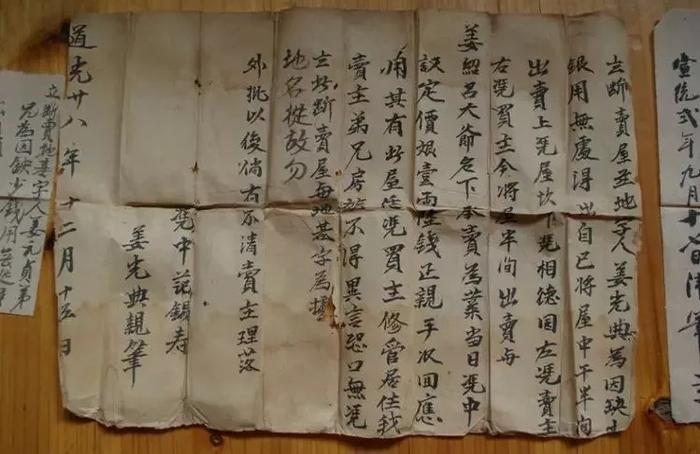 宣統弍年九月十
立断賣屋並地字人姜光典為因缺少
銀用無處得出自己将屋中干半间
出賣上凴屋坎下凴相德田左凴賣主
右凴買主今将屋半间出賣与
姜紹呂大爺名下承賣為業當日凴中
議定價銀壹両陸錢正親手收回應
用其有此屋任凴買主修管居住我
賣主弟兄房族不得異言恐口無凴
立此断賣屋与地基字為據
地名從故勿
外批以後倘有不清賣主理落
凴中范錫寿
姜光典親筆
道光廿八年十二月十五日
立断賣地基字人姜元貞弟
兄為因缺少錢用無處